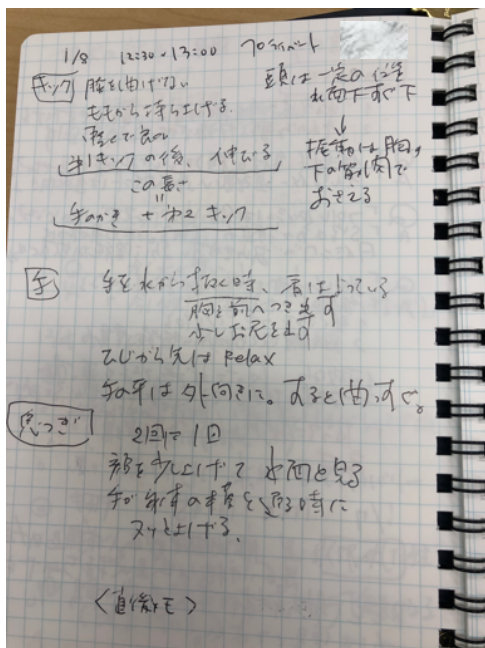 1/8 12:30-13:00 プライベート
キック 膝を曲げない
ももから持ち上げる.
軽くで良い
第1キックの後、伸びる
この長さ
手のかき + 第2キック
頭は一定の位置
水面下すぐ下
↓
振動は胸の
下の筋肉で
おさえる
手 手を水から抜く時、肩は上っている
胸を前へつき出す
少しお尻を出す
ひじから先は Relax
手の平は外向きに。すると曲る。
息つぎ
2回に1回
頭を少し上げて 水面を見る
手が 身体の横を通る時に
ヌッと上げる.
〈直後メモ〉